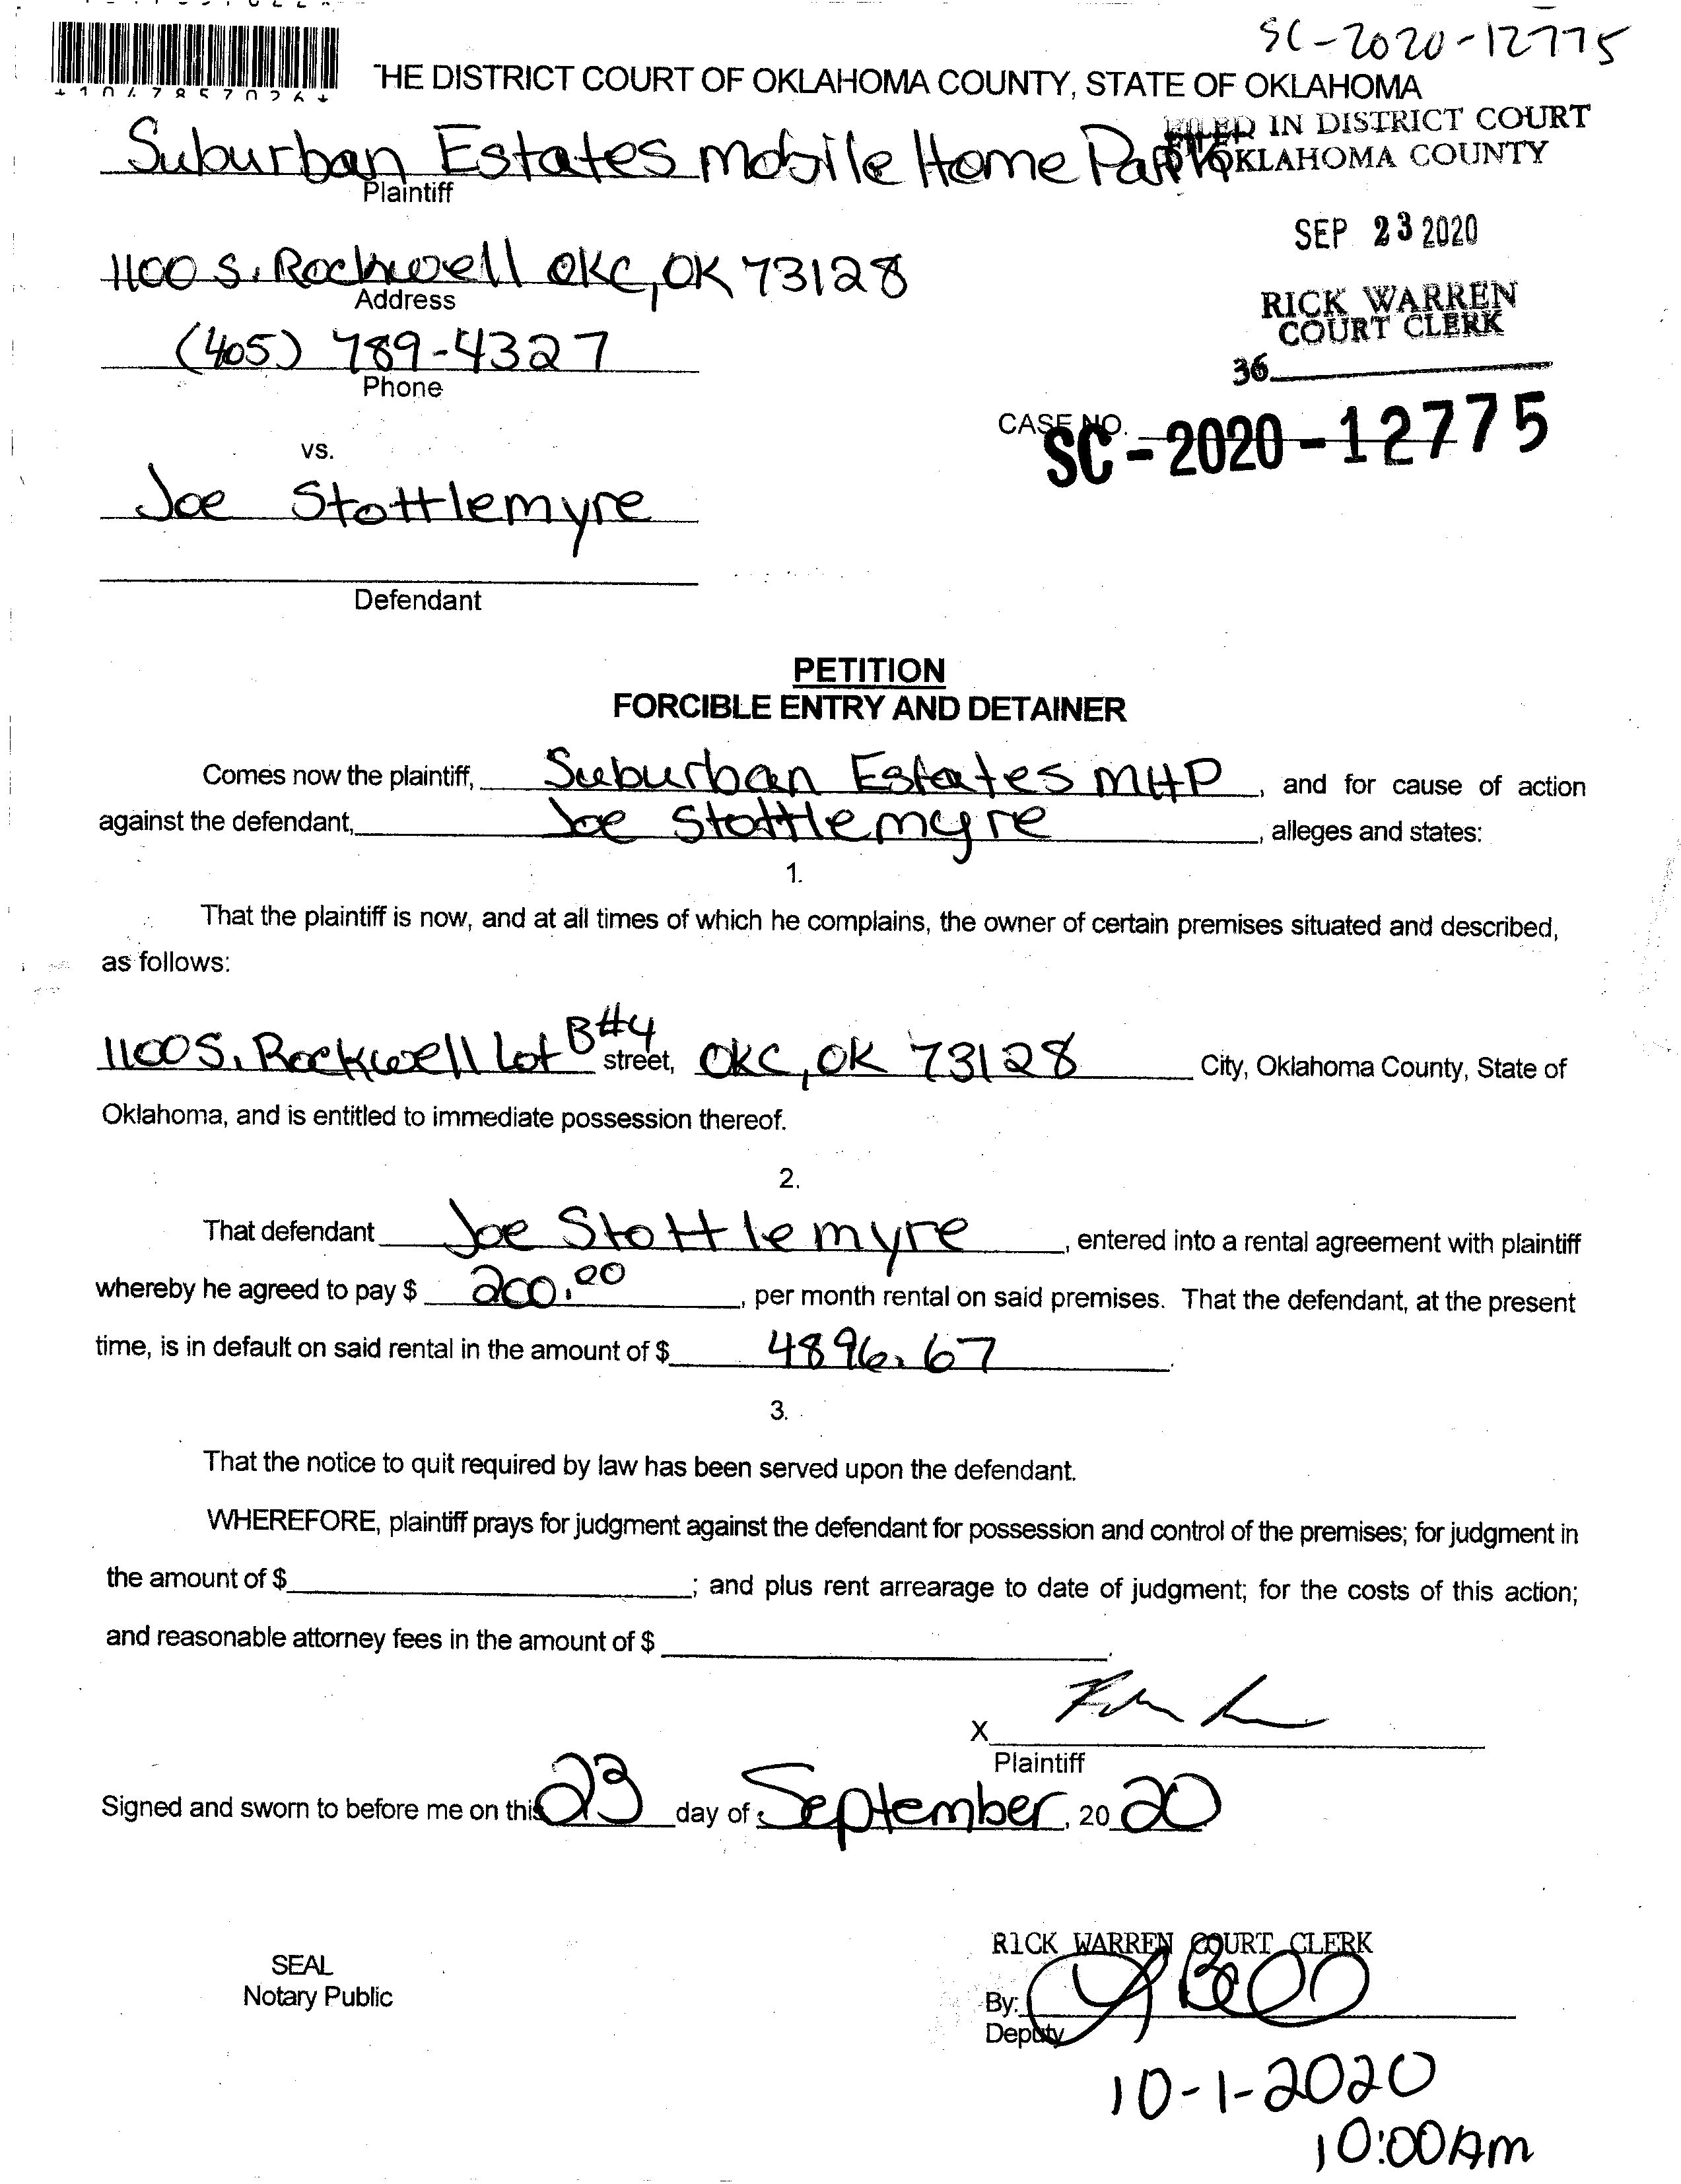 SC-2020-12775
*1047857026*
THE DISTRICT COURT OF OKLAHOMA COUNTY, STATE OF OKLAHOMA
FILED IN DISTRICT COURT
OKLAHOMA COUNTY
Suburban Estates Mobile Home Park
Plaintiff
SEP 23 2020
1100 S. Rockwell OKC, OK 73128
Address
RICK WARREN
COURT CLERK
(405) 789-4327
Phone
36
CASE NO.
SC-2020-12775
vs.
Joe Stottlemyre
Defendant
PETITION
FORCIBLE ENTRY AND DETAINER
Comes now the plaintiff, Suburban Estates MHP, and for cause of action
against the defendant, Joe Stottlemyre, alleges and states:
1.
That the plaintiff is now, and at all times of which he complains, the owner of certain premises situated and described,
as follows:
1100 S. Rockwell Lot B#4 street, OKC, OK 73128 City, Oklahoma County, State of
Oklahoma, and is entitled to immediate possession thereof.
2.
That defendant Joe Stottlemyre, entered into a rental agreement with plaintiff
whereby he agreed to pay $ 200.00, per month rental on said premises. That the defendant, at the present
time, is in default on said rental in the amount of $ 4896.67.
3.
That the notice to quit required by law has been served upon the defendant.
WHEREFORE, plaintiff prays for judgment against the defendant for possession and control of the premises; for judgment in
the amount of $ ; and plus rent arrearage to date of judgment; for the costs of this action;
and reasonable attorney fees in the amount of $ .
X
Plaintiff
Signed and sworn to before me on this 23 day of September, 20 20
RICK WARREN COURT CLERK
SEAL
Notary Public
By:
Deputy
10-1-2020
10:00Am